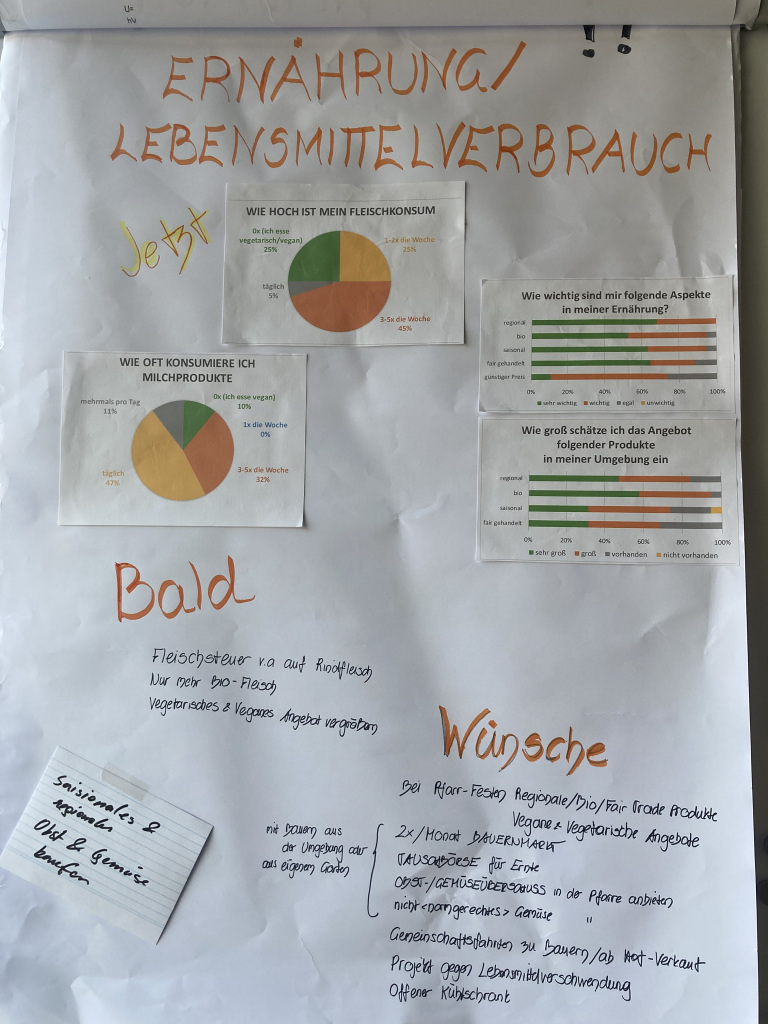 ERNÄHRUNG/
LEBENSMITTELVERBRAUCH
Jetzt
WIE HOCH IST MEIN FLEISCHKONSUM
0x (ich esse
vegetarisch/vegan)
25%
1-2x die Woche
25%
täglich
5%
3-5x die Woche
45%
WIE OFT KONSUMIERE ICH
MILCHPRODUKTE
mehrmals pro Tag
11%
0x (ich esse vegan)
10%
1x die Woche
0%
täglich
47%
3-5x die Woche
32%
Wie wichtig sind mir folgende Aspekte
in meiner Ernährung?
regional
bio
saisonal
fair gehandelt
günstiger Preis
0% 20% 40% 60% 80% 100%
sehr wichtig wichtig egal unwichtig
Wie groß schätze ich das Angebot
folgender Produkte
in meiner Umgebung ein
regional
bio
saisonal
fair gehandelt
0% 20% 40% 60% 80% 100%
sehr groß groß vorhanden nicht vorhanden
Bald
Fleischsteuer v.a auf Rindfleisch
Nur mehr BIO-Fleisch
Vegetarisches & Veganes Angebot vergrößern
Saisionales &
regionales
Obst & Gemüse
kaufen
Wünsche
Bei Pfarr-Festen Regionale/Bio/Fair Trade Produkte
Vegane & Vegetarische Angebote
mit Bauern aus
der Umgebung oder
aus eigenem Garten
2x/Monat BAUERNMARKT
TAUSCHBÖRSE für Ernte
OBST-/GEMÜSEÜBERSCHUSS in der Pfarre anbieten
nicht <normgerechtes> Gemüse "
Gemeinschaftsfahrten zu Bauern/ab Hof-Verkauf
Projekt gegen Lebensmittelverschwendung
Offener Kühlschrank